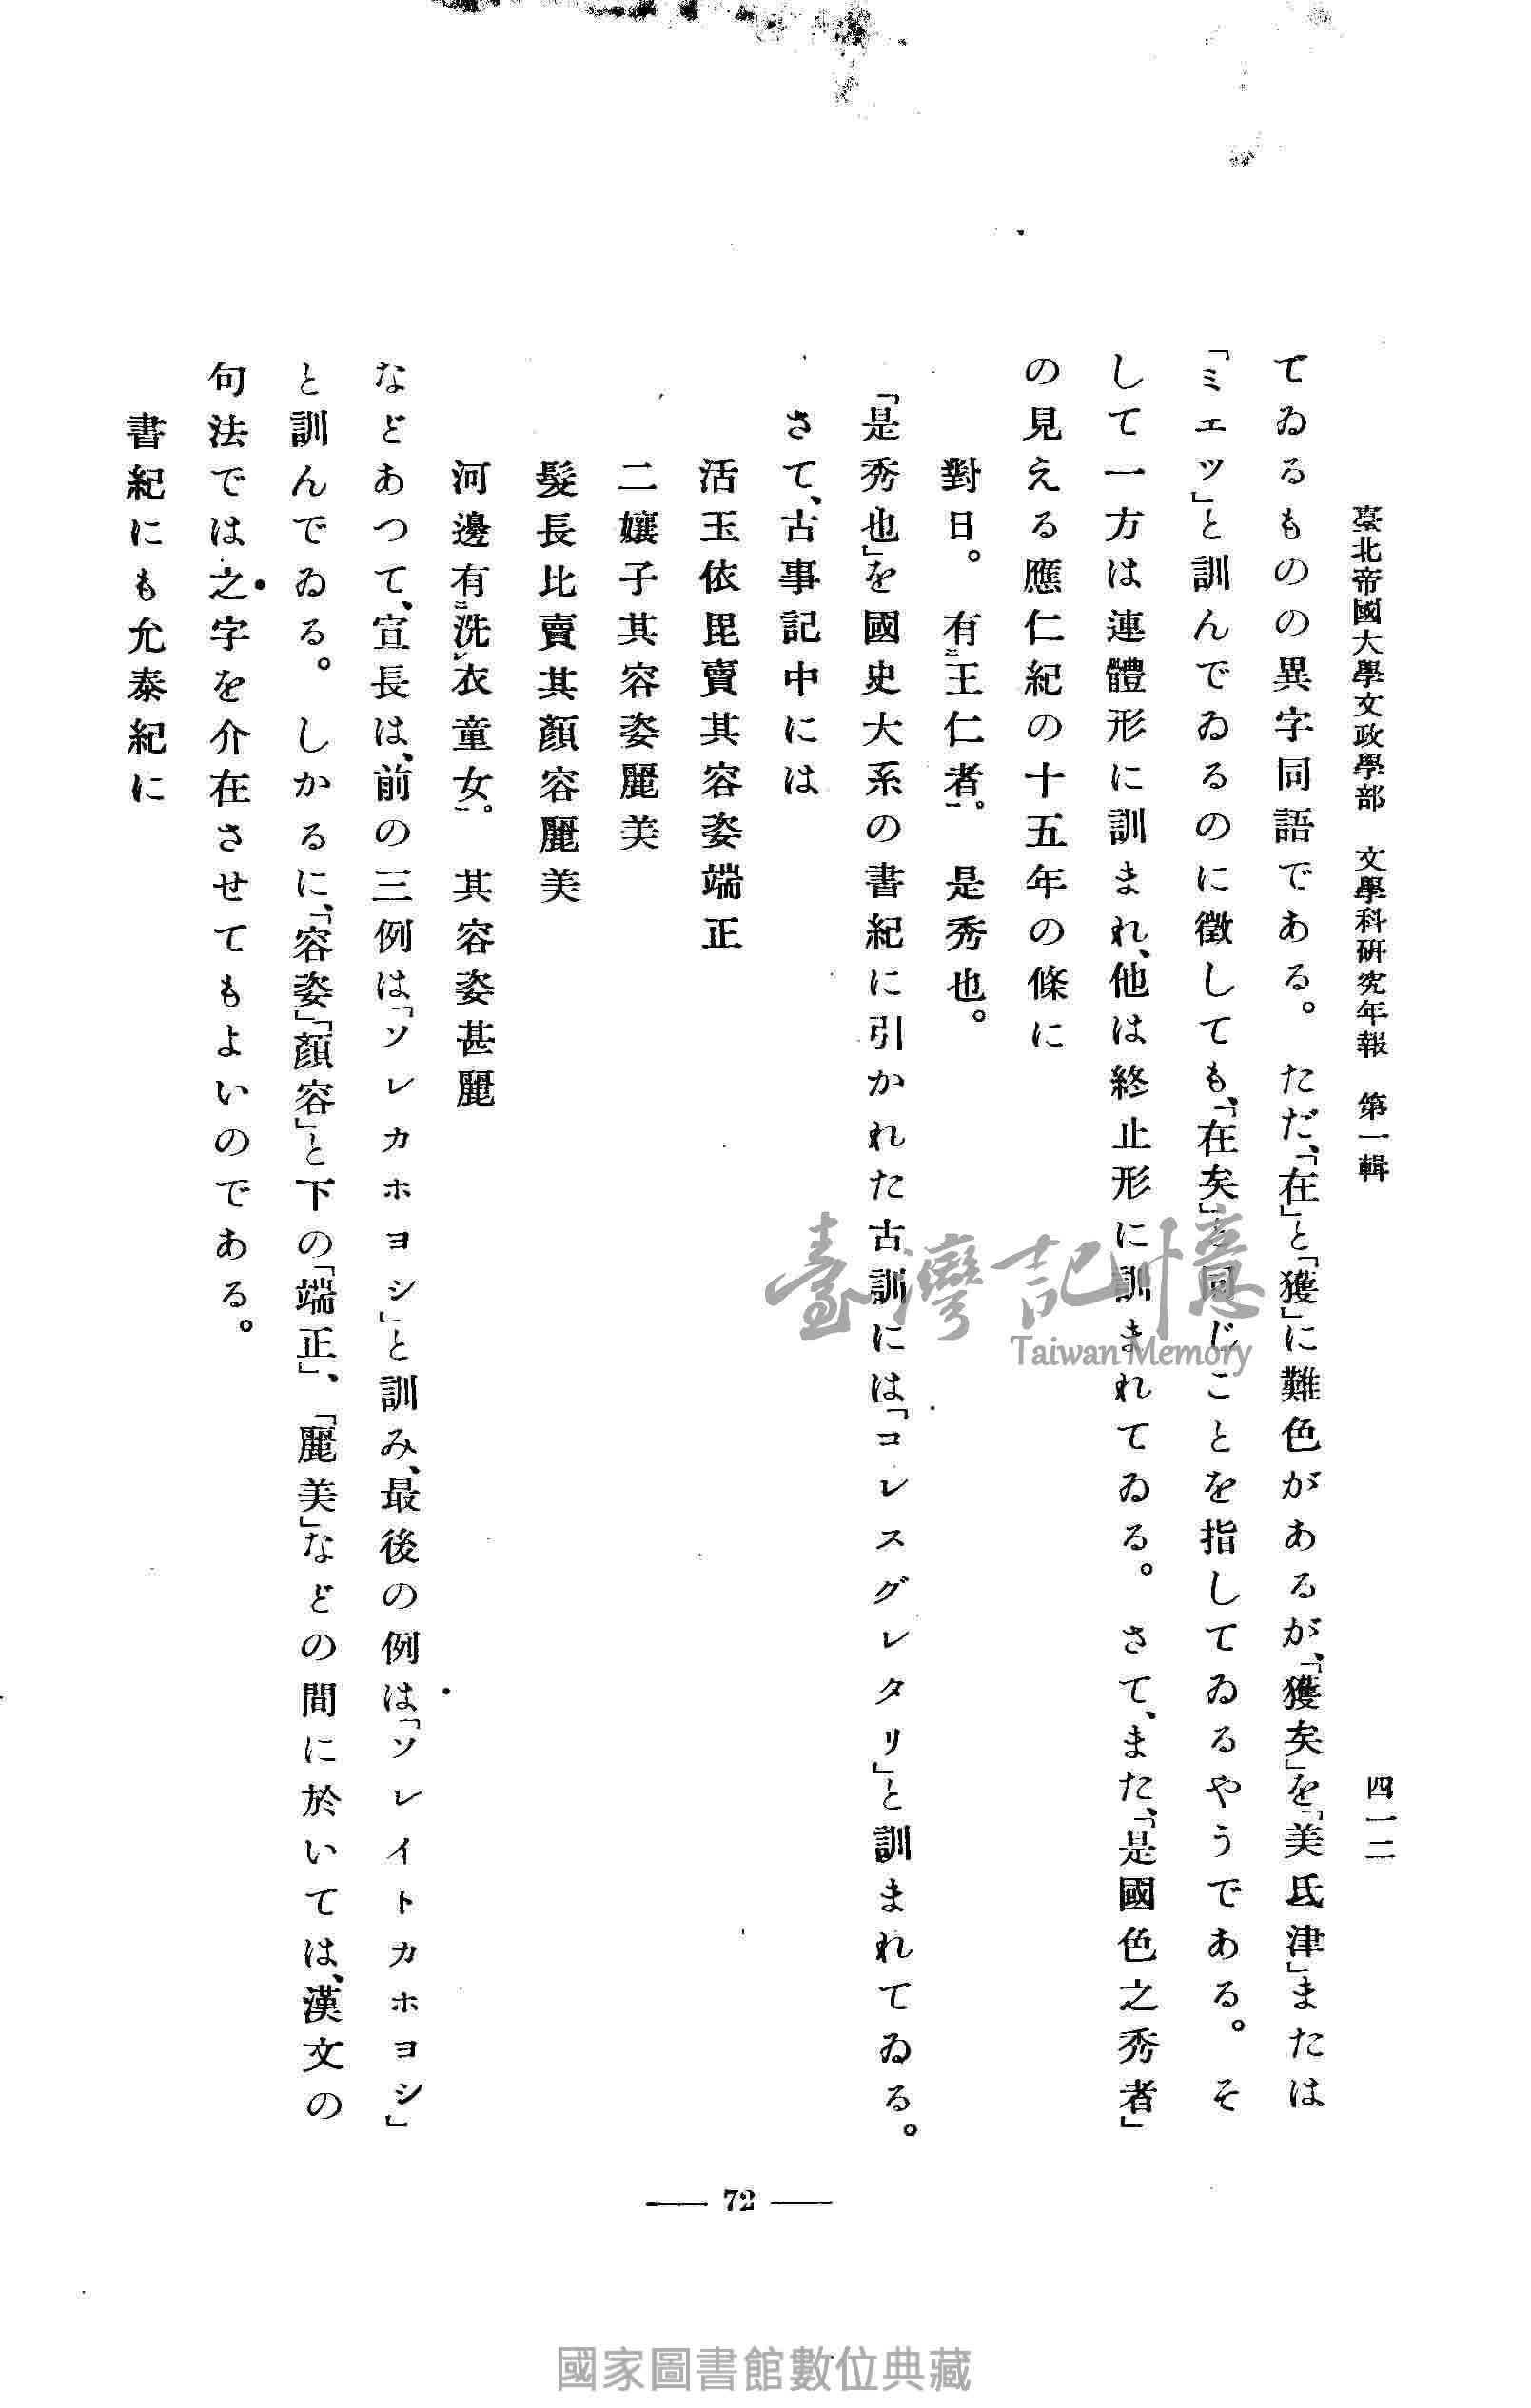 臺北帝國大學文政學部　文學科硏究年報　第一輯　四一二
てゐるものの異字同語である。　ただ、「在」と「獲」に難色があるが、「獲矣」を「美氐津」または
「ミエツ」と訓んでゐるのに徵しても、「在矣」と同じことを指してゐるやうである。　そ
して一方は連體形に訓まれ、他は終止形に訓まれてゐる。　さて、また、「是國色之秀者」
の見える應仁紀の十五年の條に
對日。　有二王仁者一。　是秀也。
「是秀也」を國史大系の書紀に引かれた古訓には「コレスグレタリ」と訓まれてゐる。
さて、古事記中には
活玉依毘賣其容姿端正
二孃子其容姿麗美
髮長比賣其顏容麗美
河邊有二洗レ衣童女一。　其容姿甚麗
などあつて、宣長は、前の三例は「ソレカホヨシ」と訓み、最後の例は「ソレイトカホヨシ」
と訓んでゐる。　しかるに、「容姿」「顏容」と下の「端正」、「麗美」などの間に於いては、漢文の
句法では之字を介在させてもよいのである。
書紀にも允泰紀に
— 72 —
臺灣記憶
Taiwan Memory
國家圖書館數位典藏